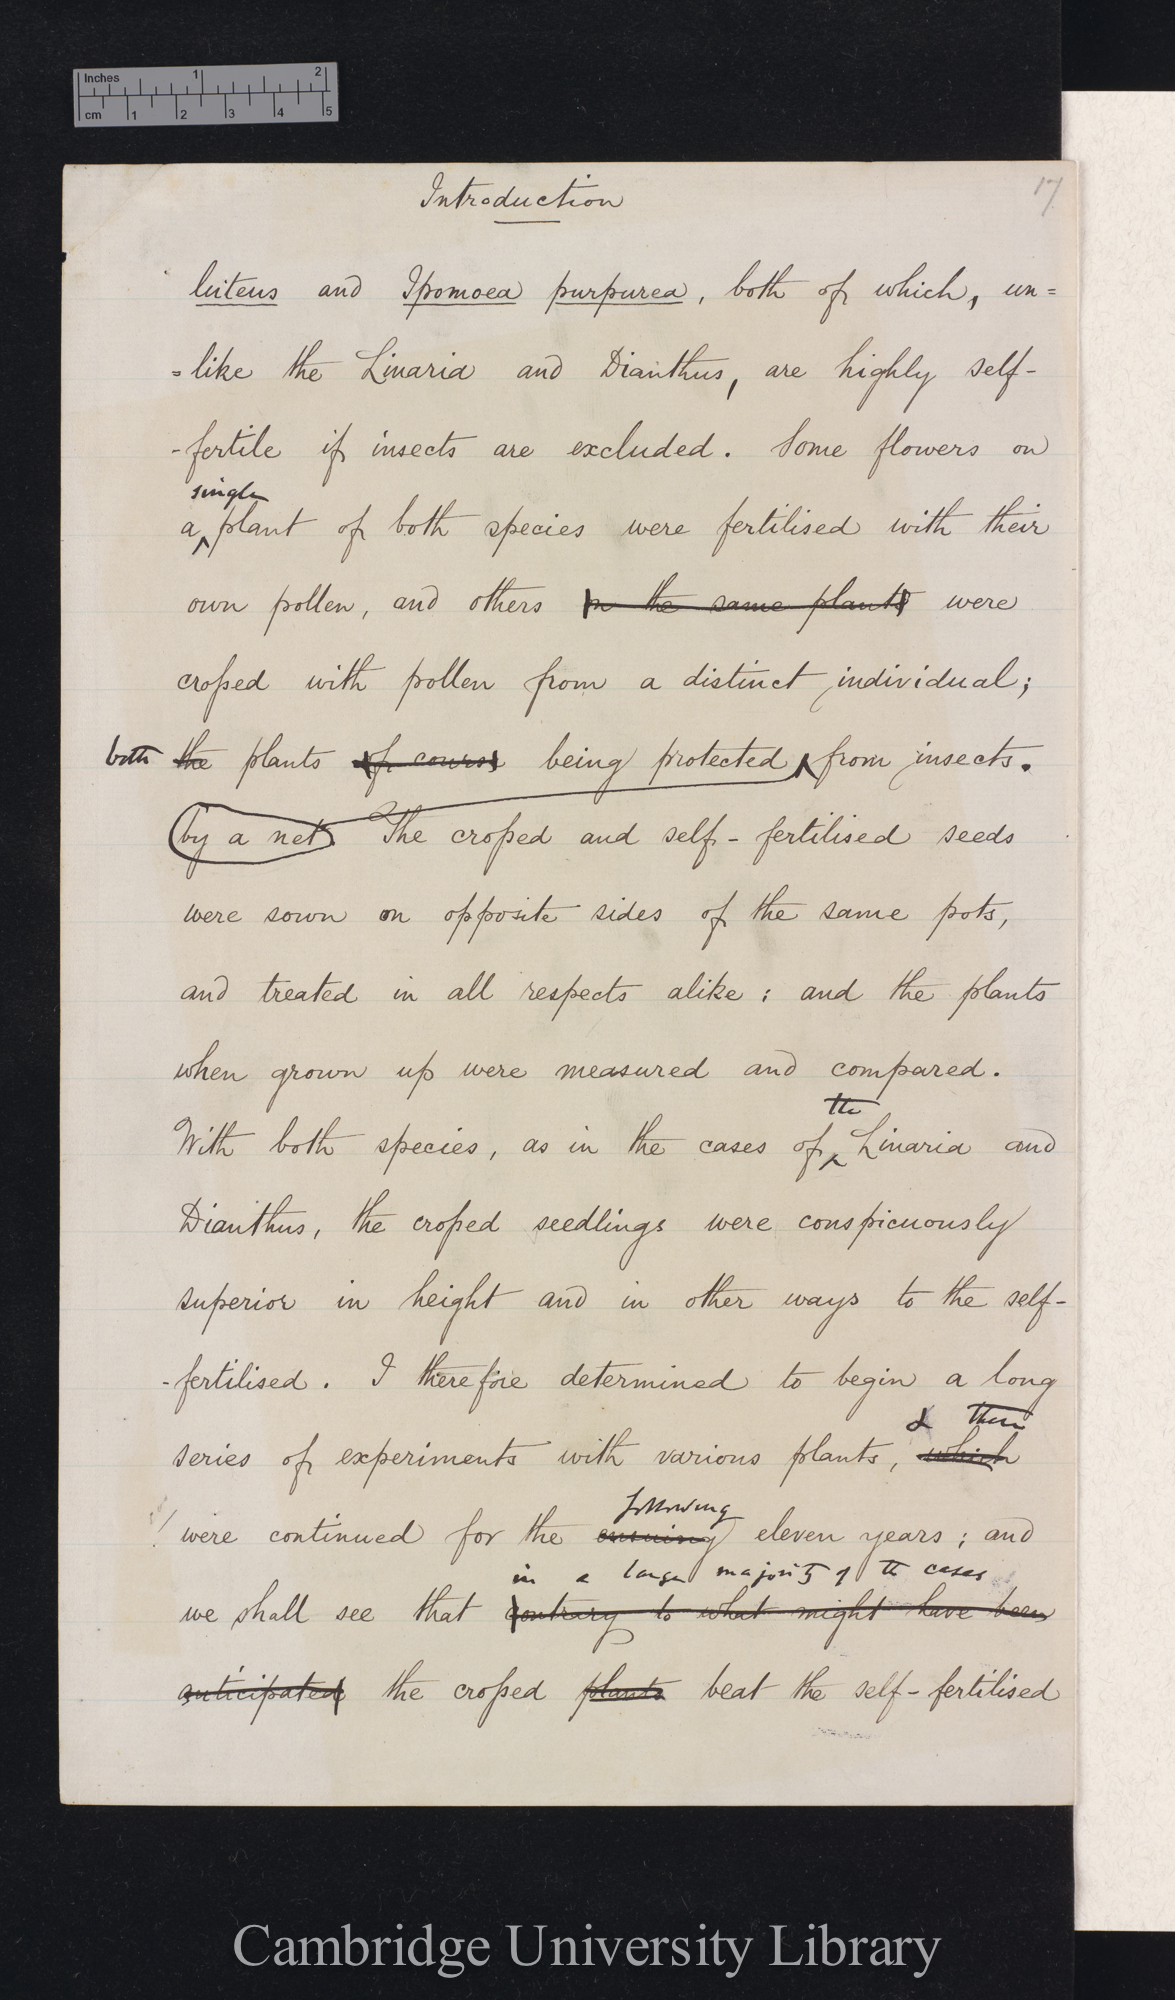 Inches 1 2
cm 1 2 3 4 5
Introduction
17
luteus and Ipomoea purpurea, both of which, un=
=like the Linaria and Dianthus, are highly self-
-fertile if insects are excluded. Some flowers on
single
a plant of both species were fertilised with their
own pollen, and others on the same plants were
crossed with pollen from a distinct individual;
both the plants of course being protected from insects.
by a net The crossed and self-fertilised seeds
were sown on opposite sides of the same pots,
and treated in all respects alike; and the plants
when grown up were measured and compared.
the
With both species, as in the cases of Linaria and
Dianthus, the crossed seedlings were conspicuously
superior in height and in other ways to the self-
-fertilised. I therefore determined to begin a long
& these
series of experiments with various plants, which
following
were continued for the ensuing eleven years; and
in a large majority of the cases
we shall see that contrary to what might have been
anticipated the crossed plants beat the self-fertilised
Cambridge University Library